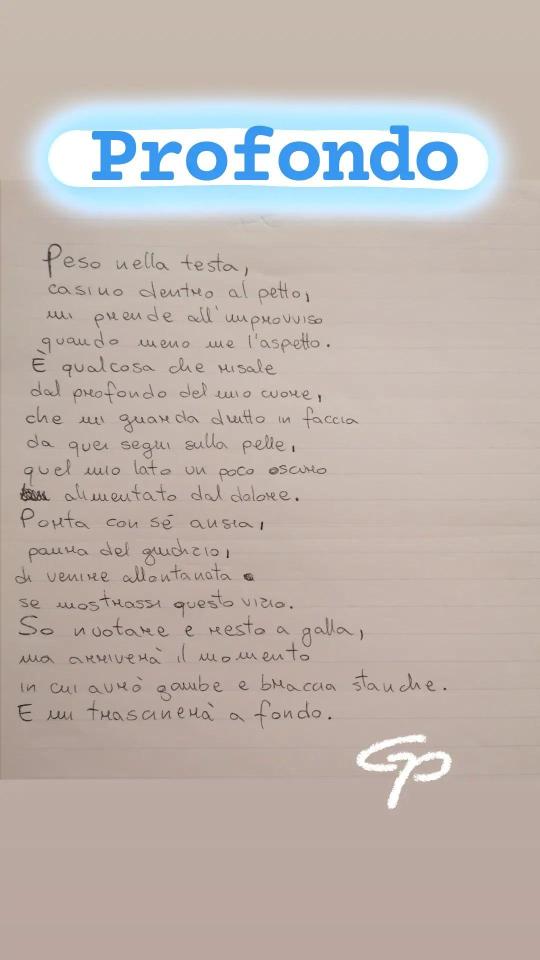 Profondo
Peso nella testa,
casino dentro al petto,
mi prende all'improvviso
quando meno me l'aspetto.
È qualcosa che risale
dal profondo del mio cuore,
che mi guarda dritto in faccia
da quei segni sulla pelle,
quel mio lato un poco oscuro
alimentato dal dolore.
Porta con sé ansia,
paura del giudizio,
di venire allontanata
se mostrassi questo vizio.
So nuotare e resto a galla,
ma arriverà il momento
in cui avrò gambe e braccia stanche.
E mi trascinerà a fondo.
GP